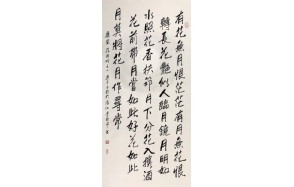 有花無月恨茫茫有月無花恨
轉長花艷似人臨月鏡月明如
水照花香扶筇月下分花入攜酒
花前帶月嘗如此好花如此
月莫將花月作尋常